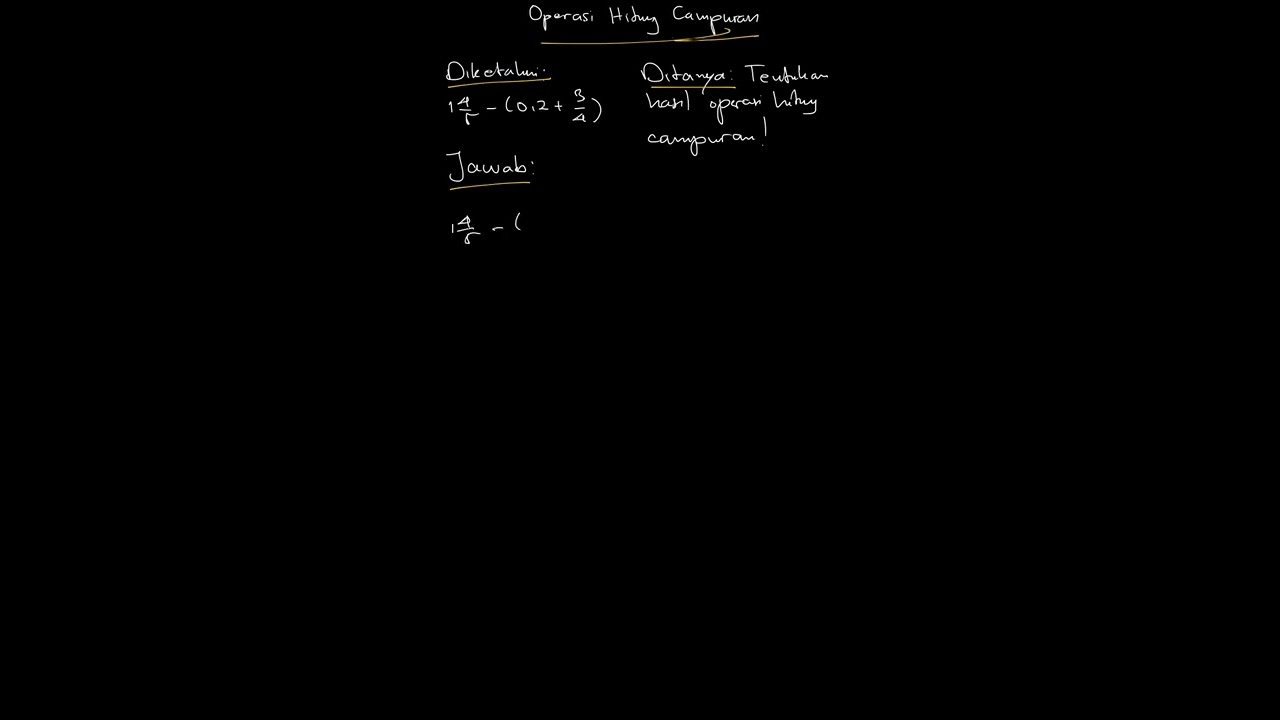 Operasi Hitung Campuran
Diketahui:
1 4/5 - (0,2 + 3/4)
Ditanya: Tentukan
hasil operasi hitung
campuran!
Jawab:
1 4/5 - (